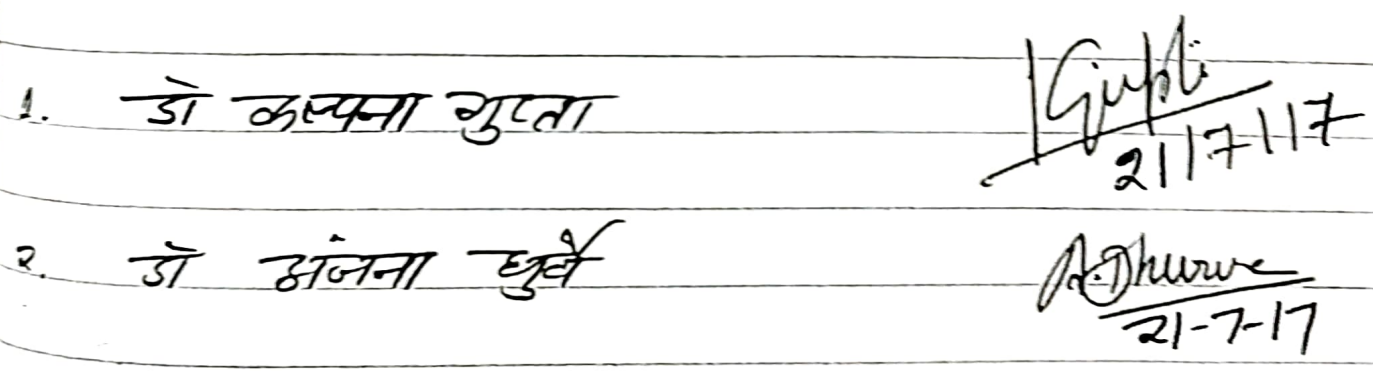 1. डॉ कल्पना गुप्ता Gupta 21/7/17
२. डॉ अंजना धुर्वे A.Dhurve 21-7-17